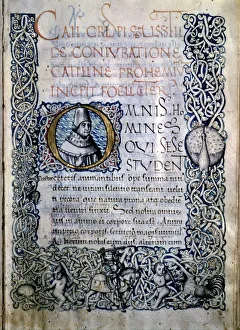 CAII CRISPI SALLVSTII
DE CONIVRATIONE
CATILINE PROHEMIV
INCIPIT FOELICITER
OMNIS HO
MINES
QVI SESE
STVDEN
ceteris animantibus ope summa niti
decet ne vitam silentio transeant velu
ti pecora que natura prona atq; obedie
ventri finxit Sed nostra omnis
vis in animo et corpore sita
animi imperio corporis servitio magis utimur
Alterum nobis cum diis alterum cum